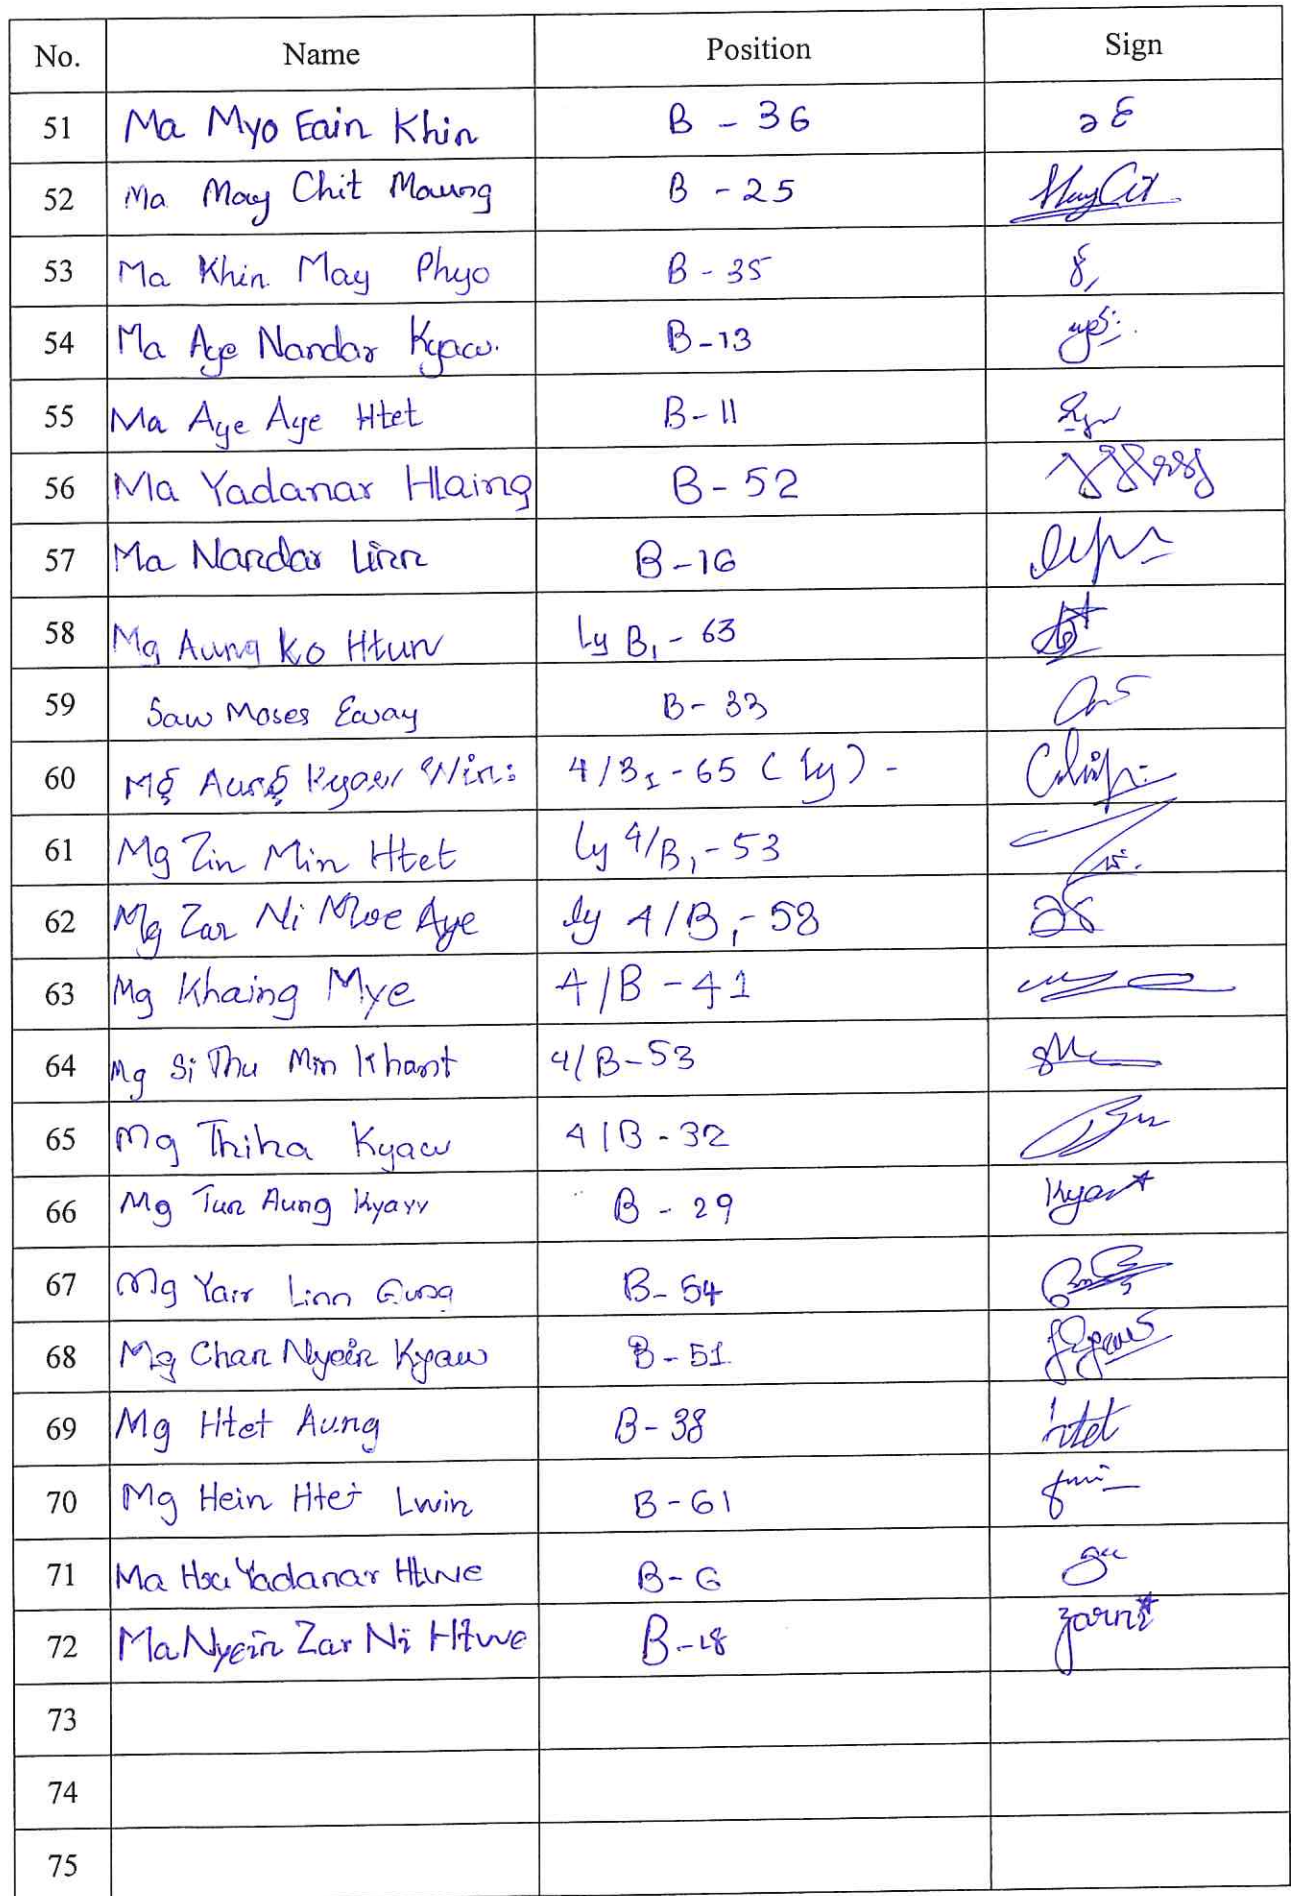 No. Name Position Sign
51 Ma Myo Eain Khin B - 36
52 Ma May Chit Maung B - 25 May Cit
53 Ma Khin May Phyo B - 35
54 Ma Aye Nandar Kyaw. B-13
55 Ma Aye Aye Htet B-11
56 Ma Yadanar Hlaing B-52
57 Ma Nandar Linn B-16
58 Mg Aung Ko Htun Iy B1 - 63
59 Saw Moses Eway B-33
60 Mg Aung Kyaw Win: 4/B1-65 (Iy) -
61 Mg Zin Min Htet Iy 4/B1-53
62 Mg Zar Ni Moe Aye Iy 4/B1-58
63 Mg Khaing Mye 4/B-41
64 Mg Si Thu Min Khant 4/B-53
65 Mg Thiha Kyaw 4/B-32
66 Mg Tun Aung Kyaw B - 29 Kyaw
67 Mg Yair Linn Aung B-54
68 Mg Chan Nyein Kyaw B-51
69 Mg Htet Aung B-38 htet
70 Mg Hein Htet Lwin B-61
71 Ma Hsu Yadanar Htwe B-6
72 Ma Nyein Zar Ni Htwe B-18 zarni
73
74
75